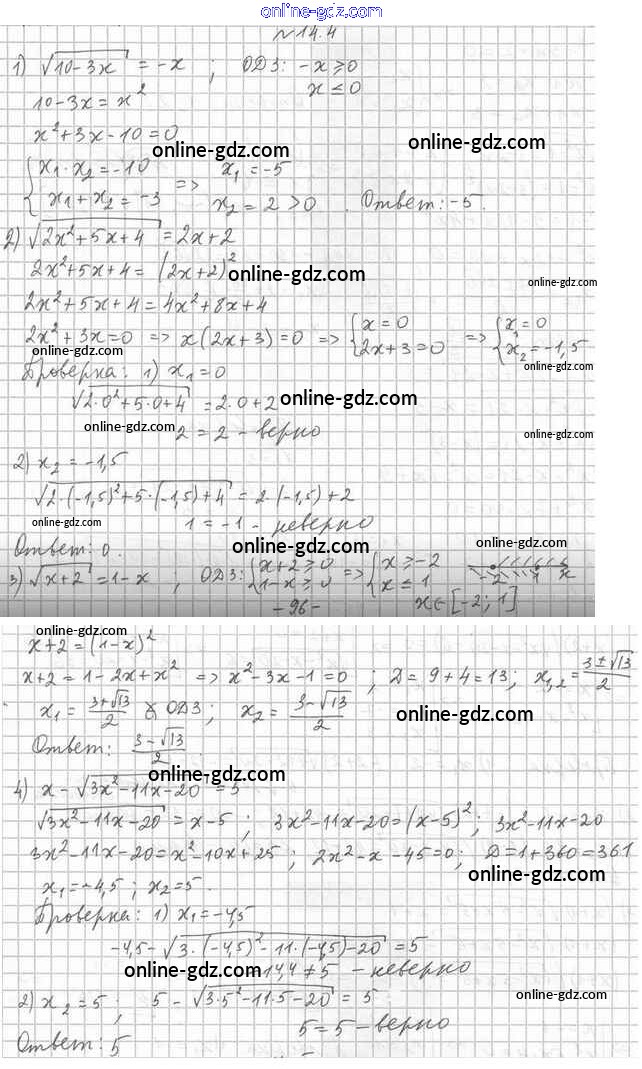 online-gdz.com
№14.4
1) √(10-3x) = -x ; ОДЗ: -x ≥ 0
x ≤ 0
10-3x = x²
x²+3x-10=0
online-gdz.com
online-gdz.com
{x₁·x₂=-10 => x₁=-5
x₁+x₂=-3 x₂=2>0. Ответ: -5.
2) √(2x²+5x+4) = 2x+2
2x²+5x+4 = (2x+2)²
online-gdz.com
online-gdz.com
2x²+5x+4 = 4x²+8x+4
2x²+3x=0 => x(2x+3)=0 => {x=0 2x+3=0 => {x₁=0 x₂=-1,5
online-gdz.com
online-gdz.com
Проверка: 1) x₁=0
√(2·0²+5·0+4) = 2·0+2
online-gdz.com
online-gdz.com
online-gdz.com
2=2 - верно
2) x₂=-1,5
√(2·(-1,5)²+5·(-1,5)+4) = 2·(-1,5)+2
online-gdz.com
1=-1 - неверно
Ответ: 0.
online-gdz.com
online-gdz.com
3) √(x+2) = 1-x ; ОДЗ: {x+2≥0 1-x≥0 => {x≥-2 x≤1 -2 1 x
-96-
x∈[-2; 1]
online-gdz.com
x+2=(1-x)²
x+2=1-2x+x² => x²-3x-1=0 ; D=9+4=13; x₁,₂=(3±√13)/2
x₁=(3+√13)/2 ∉ ОДЗ; x₂=(3-√13)/2
online-gdz.com
Ответ: (3-√13)/2.
online-gdz.com
4) x-√(3x²-11x-20) = 5
√(3x²-11x-20) = x-5 ; 3x²-11x-20=(x-5)² ; 3x²-11x-20
3x²-11x-20=x²-10x+25 ; 2x²-x-45=0; D=1+360=361
online-gdz.com
x₁=-4,5 ; x₂=5.
Проверка: 1) x₁=-4,5
-4,5-√(3·(-4,5)²-11·(-4,5)-20) = 5
online-gdz.com
14,4≠5 - неверно
online-gdz.com
2) x₂=5; 5-√(3·5²-11·5-20) = 5
5=5 - верно
Ответ: 5